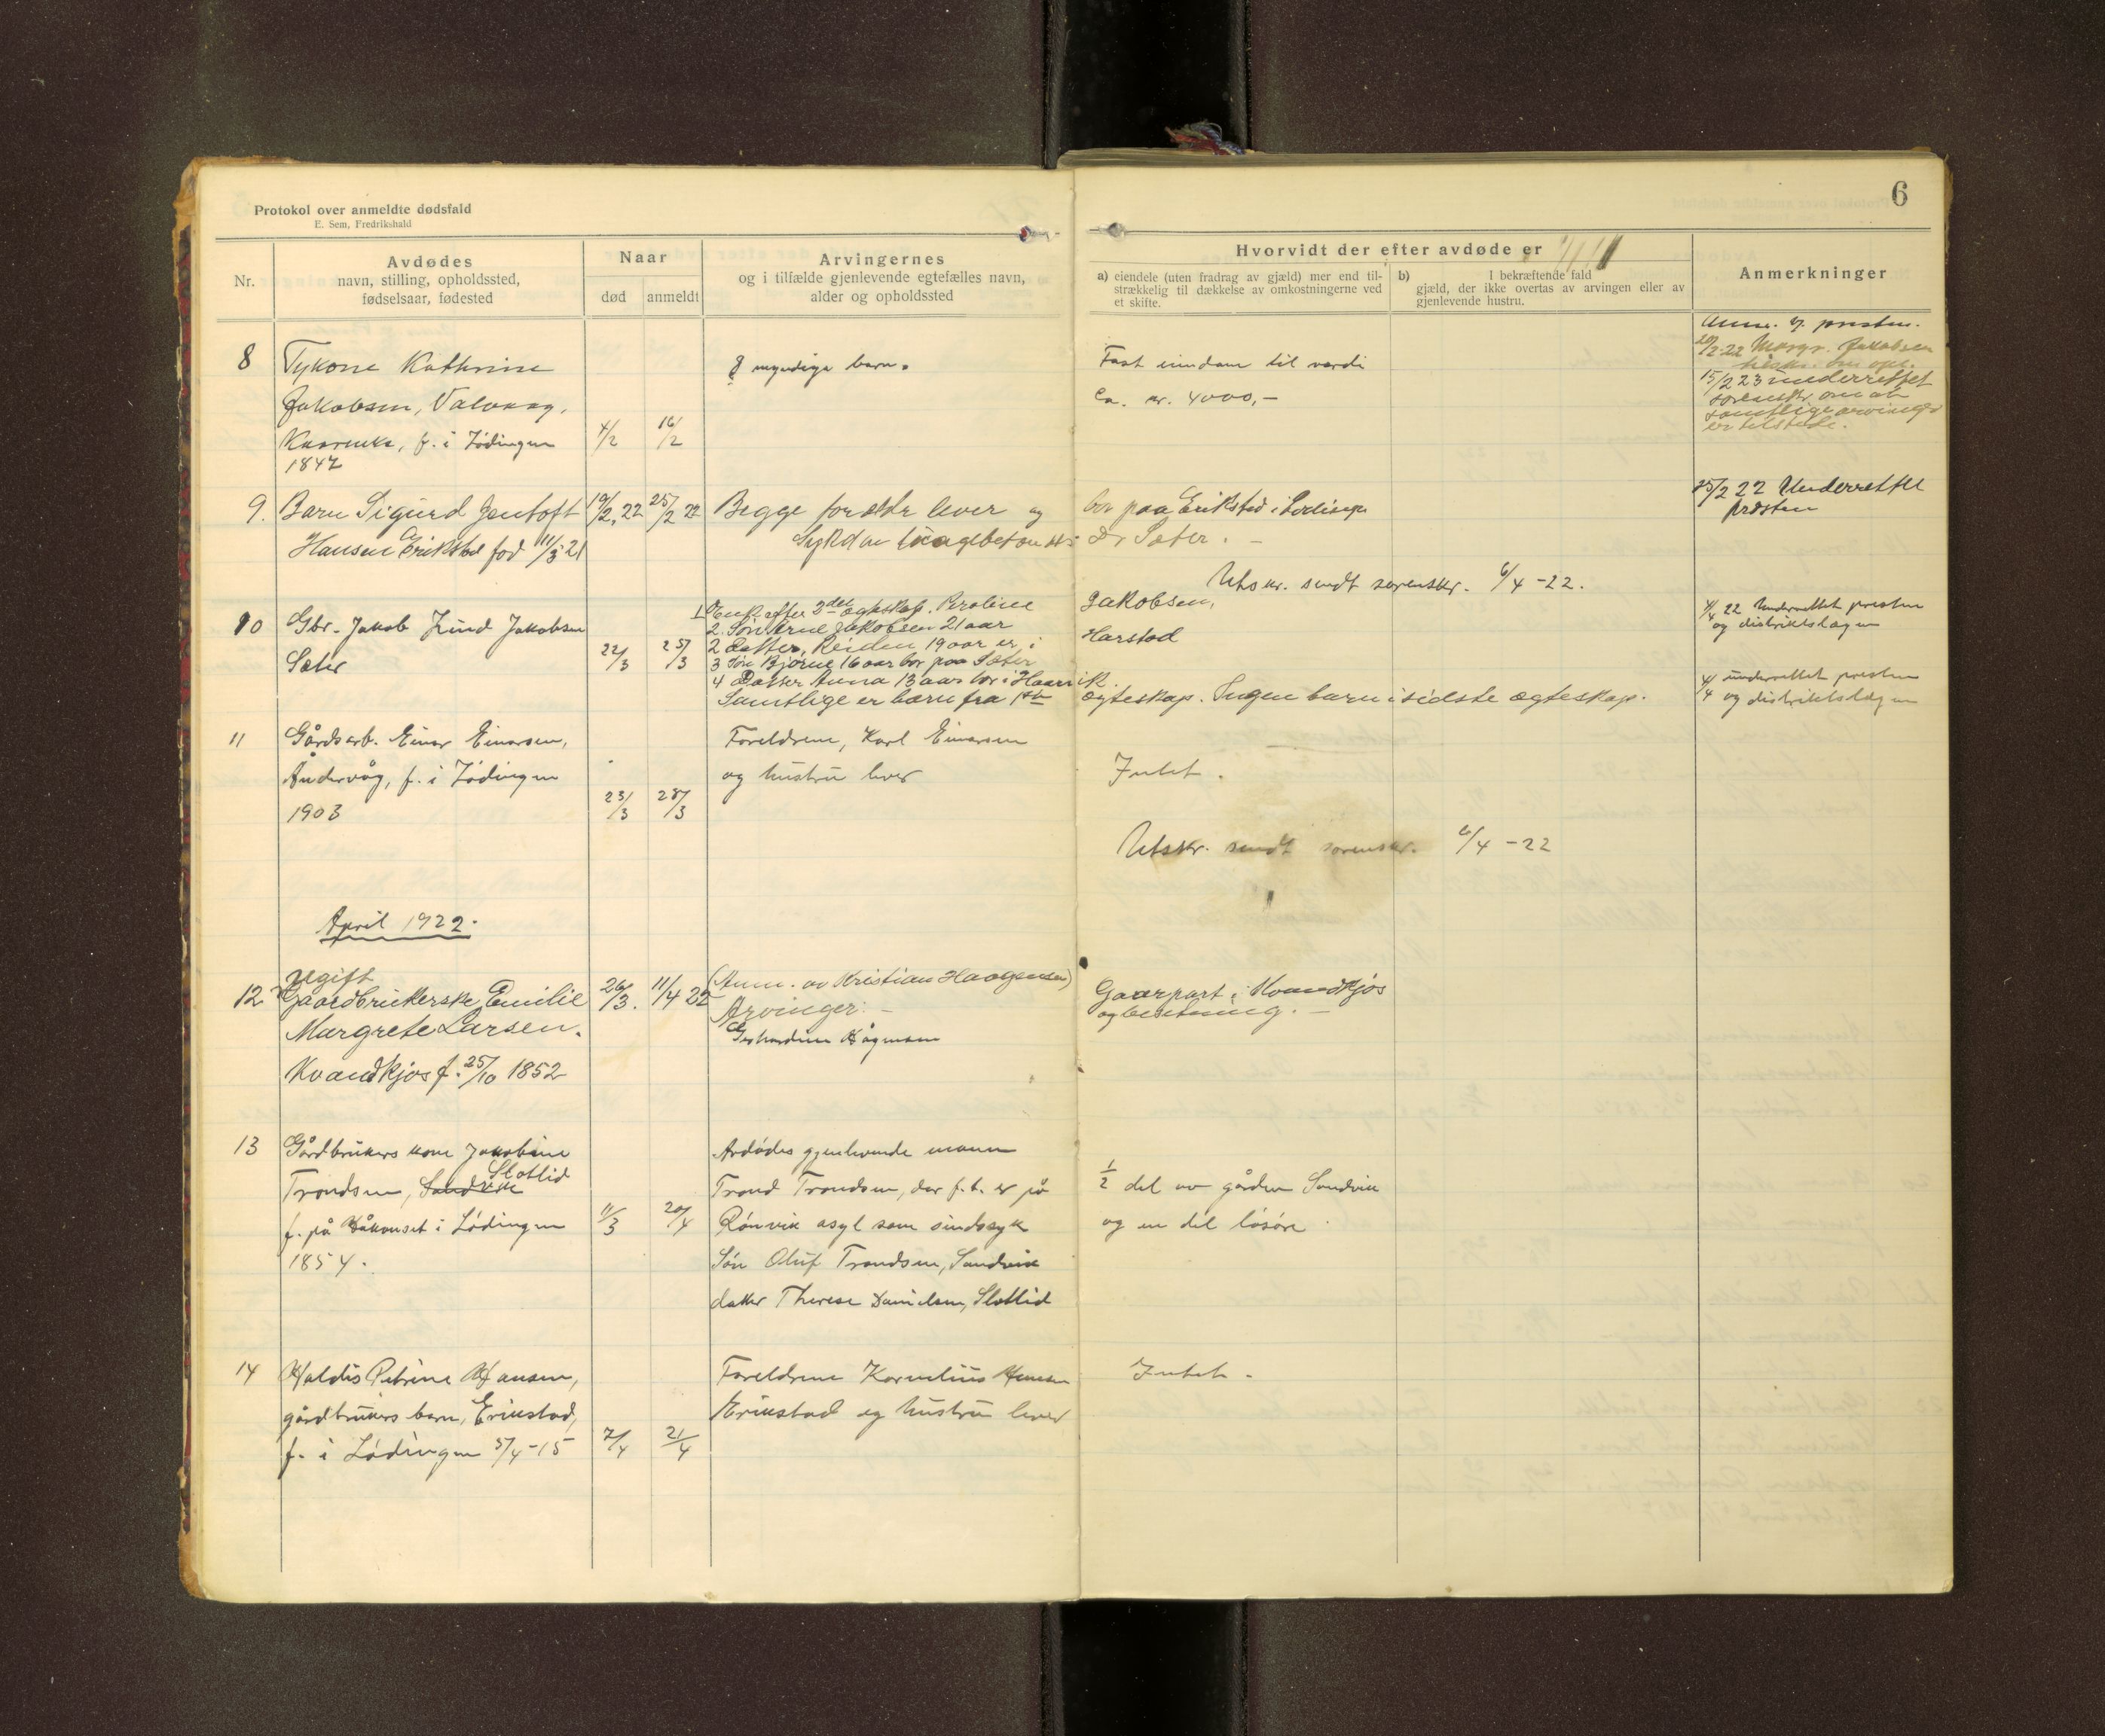 Protokol over anmeldte dødsfald
E. Sem, Fredrikshald
6
Nr.
Avdødes
navn, stilling, opholdssted,
fødselsaar, fødested
Naar
død
anmeldt
Arvingernes
og i tilfælde gjenlevende egtefælles navn,
alder og opholdssted
Hvorvidt der efter avdøde er
a) eiendele (uten fradrag av gjæld) mer end til-
strækkelig til dækkelse av omkostningerne ved
et skifte.
b) I bekræftende fald
gjæld, der ikke overtas av arvingen eller av
gjenlevende hustru.
Anmerkninger
8
Kathrine
Jakobsen, Valvaag,
f. i Lödingen
1847
4/2
16/2
8 myndige barn.
Fast eiendom til værdi
ca. kr. 4000,-
presten.
20/2-22 Margr. Jakobsen
15/2 23 underrettet
sorenskr. om at
samtlige arvinger
er tilstede.
9.
Barn Sigurd Jentoft
Hansen Erikstad fød 11/3 21
19/2, 22
25/2 22
Begge forældr lever og
bor paa Erikstad i
Dr Sæter. -
25/2 22 Underrettet
presten
Utskr. sendt sorenskr. 6/4 -22.
10
Gbr. Jakob Lund Jakobsen
Sæter
22/3
25/3
1 Enke efter 2det ægteskap. Peroline
Jakobsen,
2. Søn Arne Jakobsen 21 aar
2 Datter, Reidun 19 aar er i
Harstad
3 Søn Bjørne 16 aar bor paa Sæter
4 Datter Anna 13 aar bor i Haarvik.
Samtlige er barn fra 1ste
ægteskap. Ingen barn i sidste ægteskap.
4/4 22 Underrettet presten
og distriktslægen
11
Gårdsarb. Einar Einarsen,
Åndervåg, f. i Lödingen
1903
23/3
28/3
Foreldrene, Karl Einarsen
og hustru lever
Intet.
4/4 underrettet presten
og distriktslægen
Utskr. sendt sorenskr. 6/4 -22
April 1922.
12
Ugift
Gaardbrukerske Emilie
Margrete Larsen.
Kvandkjos f. 25/10 1852
26/3.
11/4 22
(Anm. av Kristian Haagensen)
Arvinger: -
Gerhardine Hågensen
Gaarpart i Kvandkjos
og besetning. -
13
Gårdbrukers kone Jakobine
Slotlid
Trondsen, Sandvik
f. på Håkonset i Lödingen
1854.
11/3
20/4
Avdödes gjenlevende mann
Trond Trondsen, der f.t. er på
Rönvik asyl som sindssyk
Sön Oluf Trondsen, Sandvik
datter Therese Danielsen, Slotlid
1/2 del av gården Sandvik
og en del lösöre
14
Haldis Petrine Hansen,
gårdbrukers barn, Erikstad,
f. i Lödingen 5/4-15
7/4
21/4
Foreldrene Kornelius Hansen
Erikstad og hustru lever
Intet.